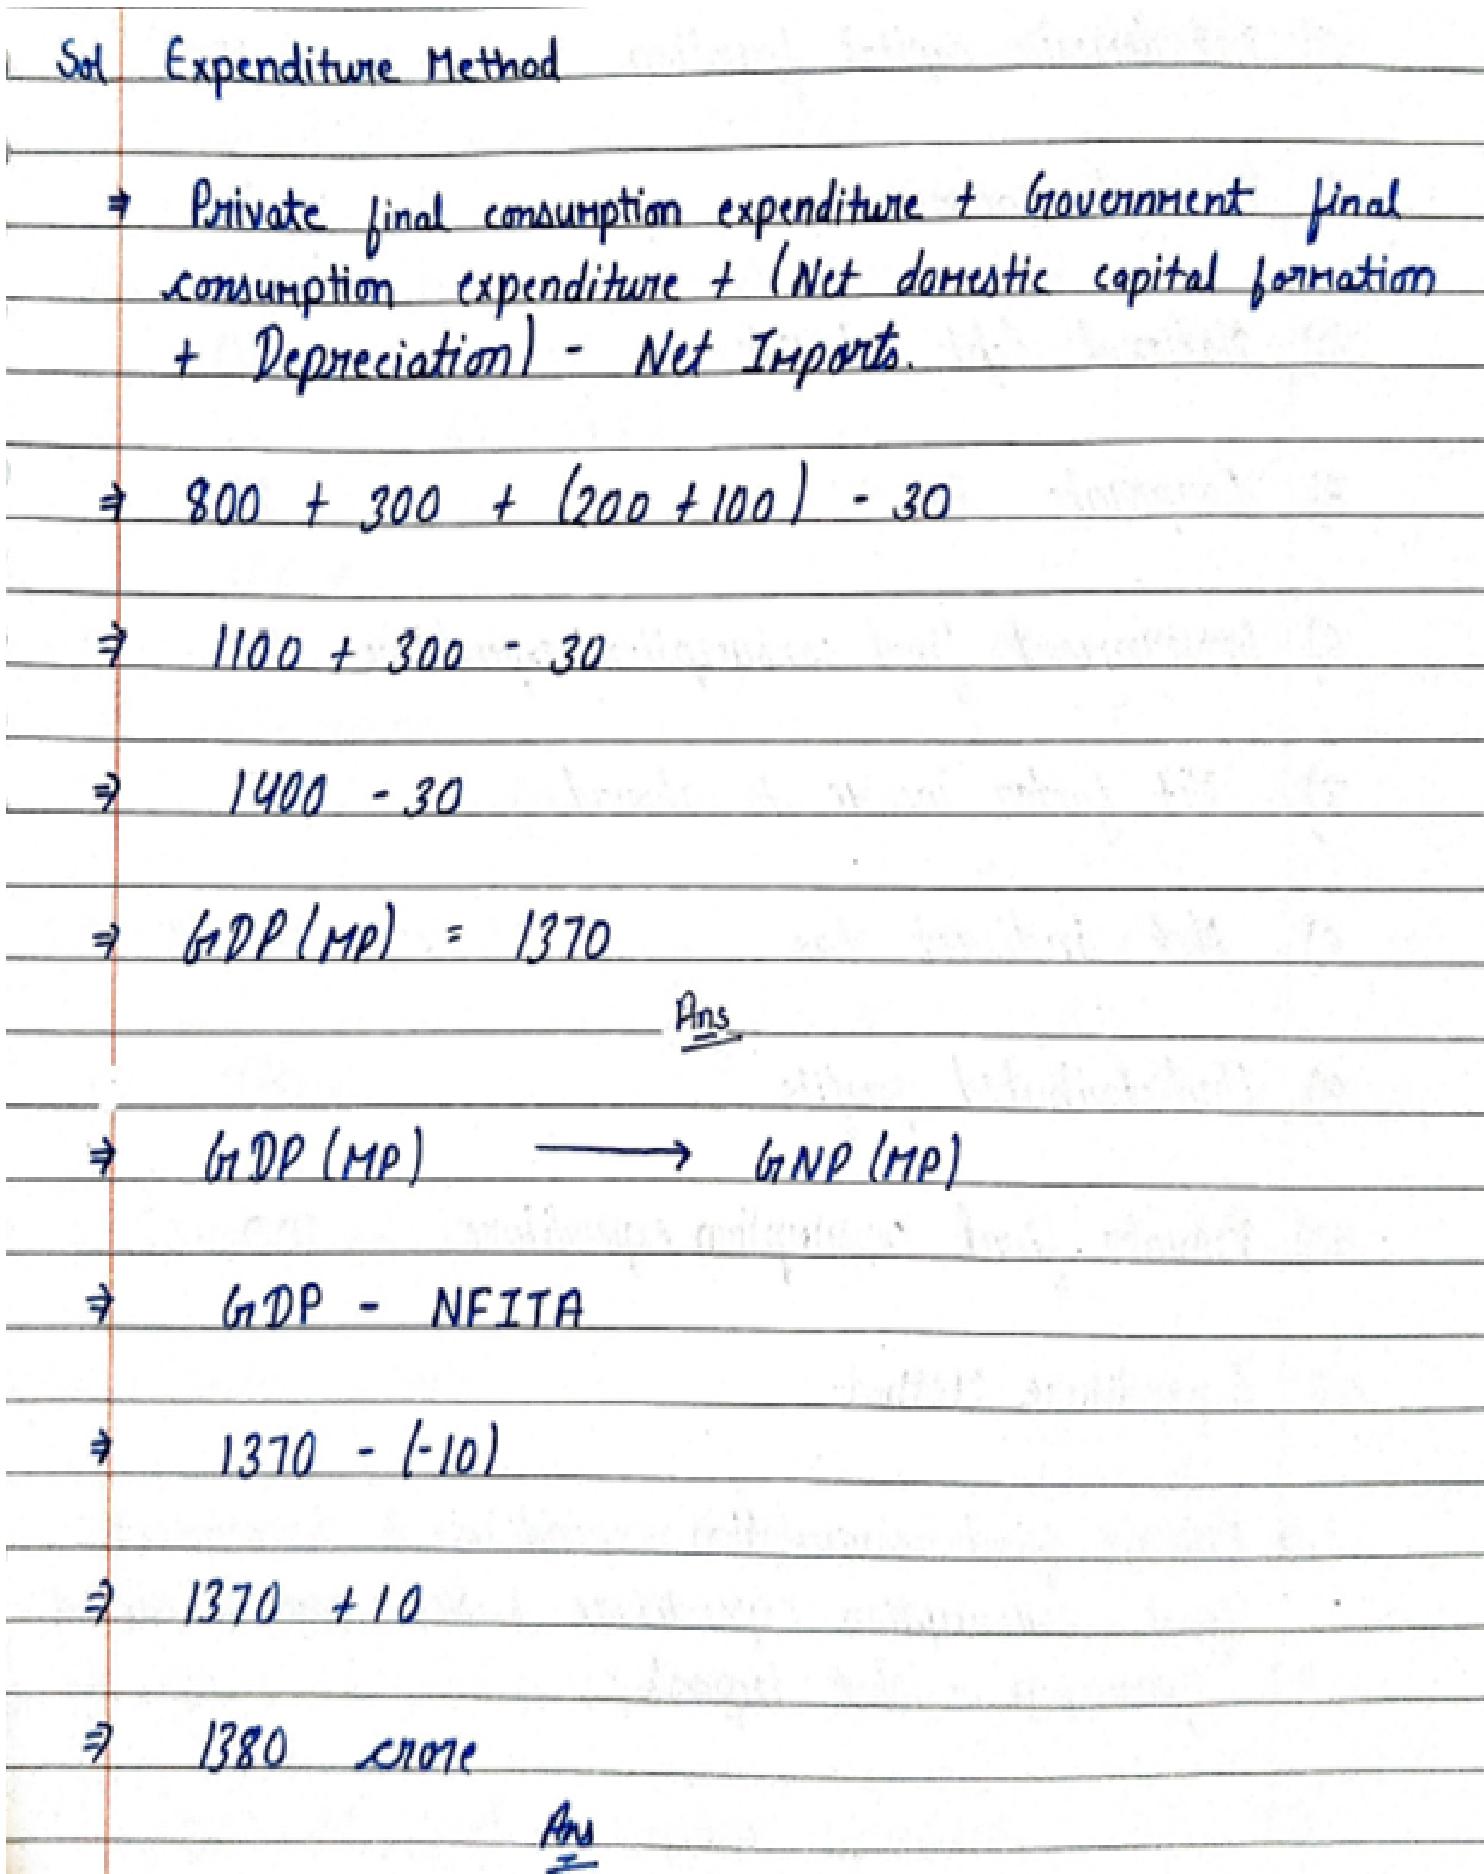 Sol Expenditure Method
⇒ Private final consumption expenditure + Government final
consumption expenditure + (Net domestic capital formation
+ Depreciation) - Net Imports.
⇒ 800 + 300 + (200 + 100) - 30
⇒ 1100 + 300 - 30
⇒ 1400 - 30
⇒ GDP (MP) = 1370
Ans
⇒ GDP (MP) ⟶ GNP (MP)
⇒ GDP - NFITA
⇒ 1370 - (-10)
⇒ 1370 + 10
⇒ 1380 crore
Ans